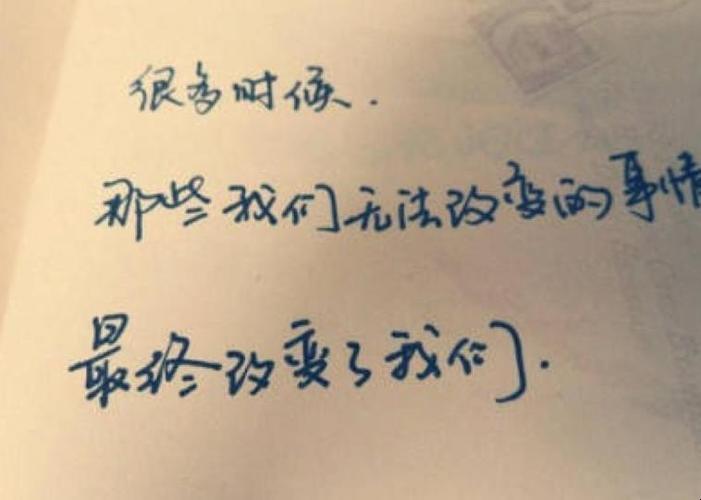 很多时候.
那些我们无法改变的事情
最终改变了我们.